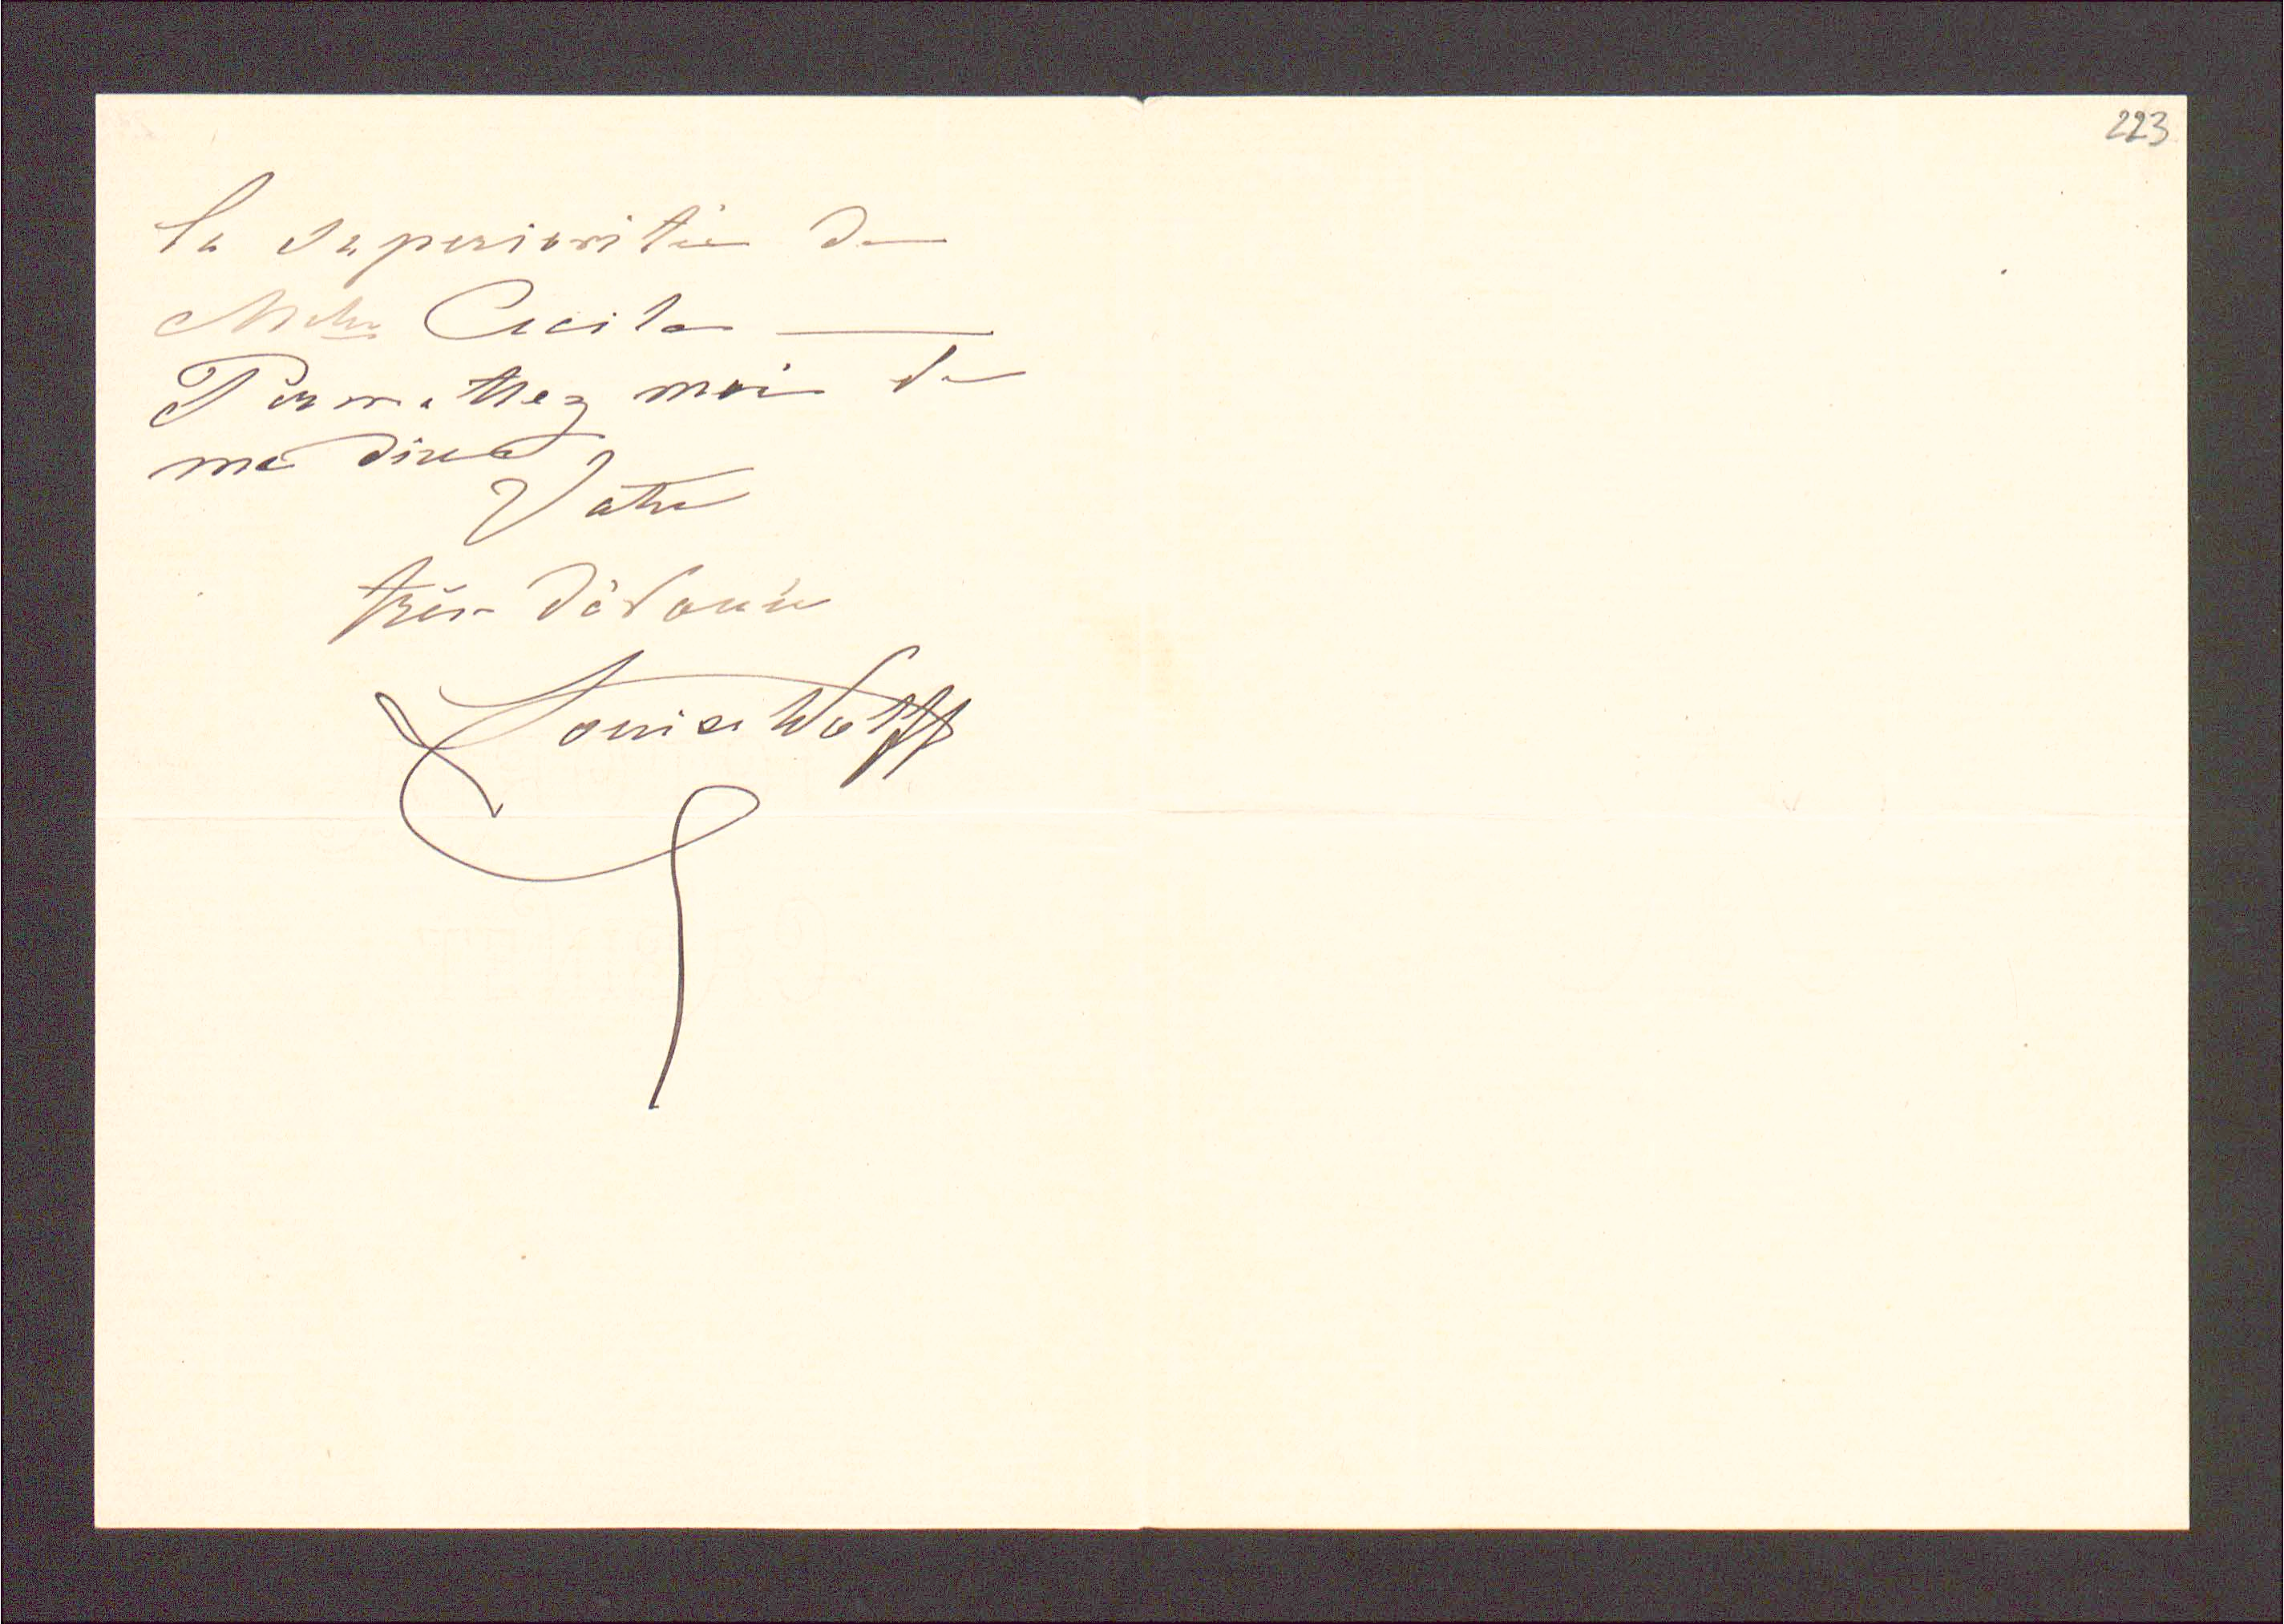 223
la superiorité de
Mlle Cecile —
Permettez moi de
me dire
Votre
très dévouée
Louise Wolff